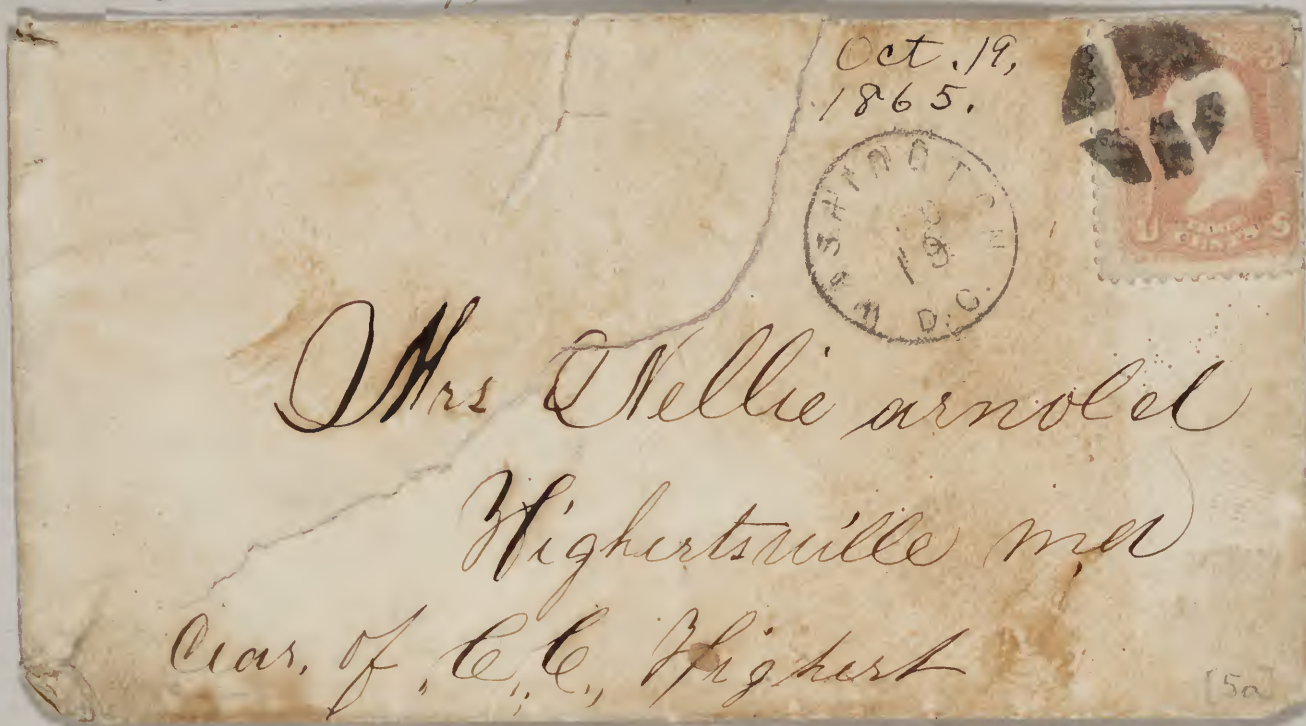 Oct. 19,
1865.
WASHINGTON
19
D.C.
U THREE CENTS S
Mrs Nellie arnold
Highertsville md
Ciar. of C, C, Highert
[5a]